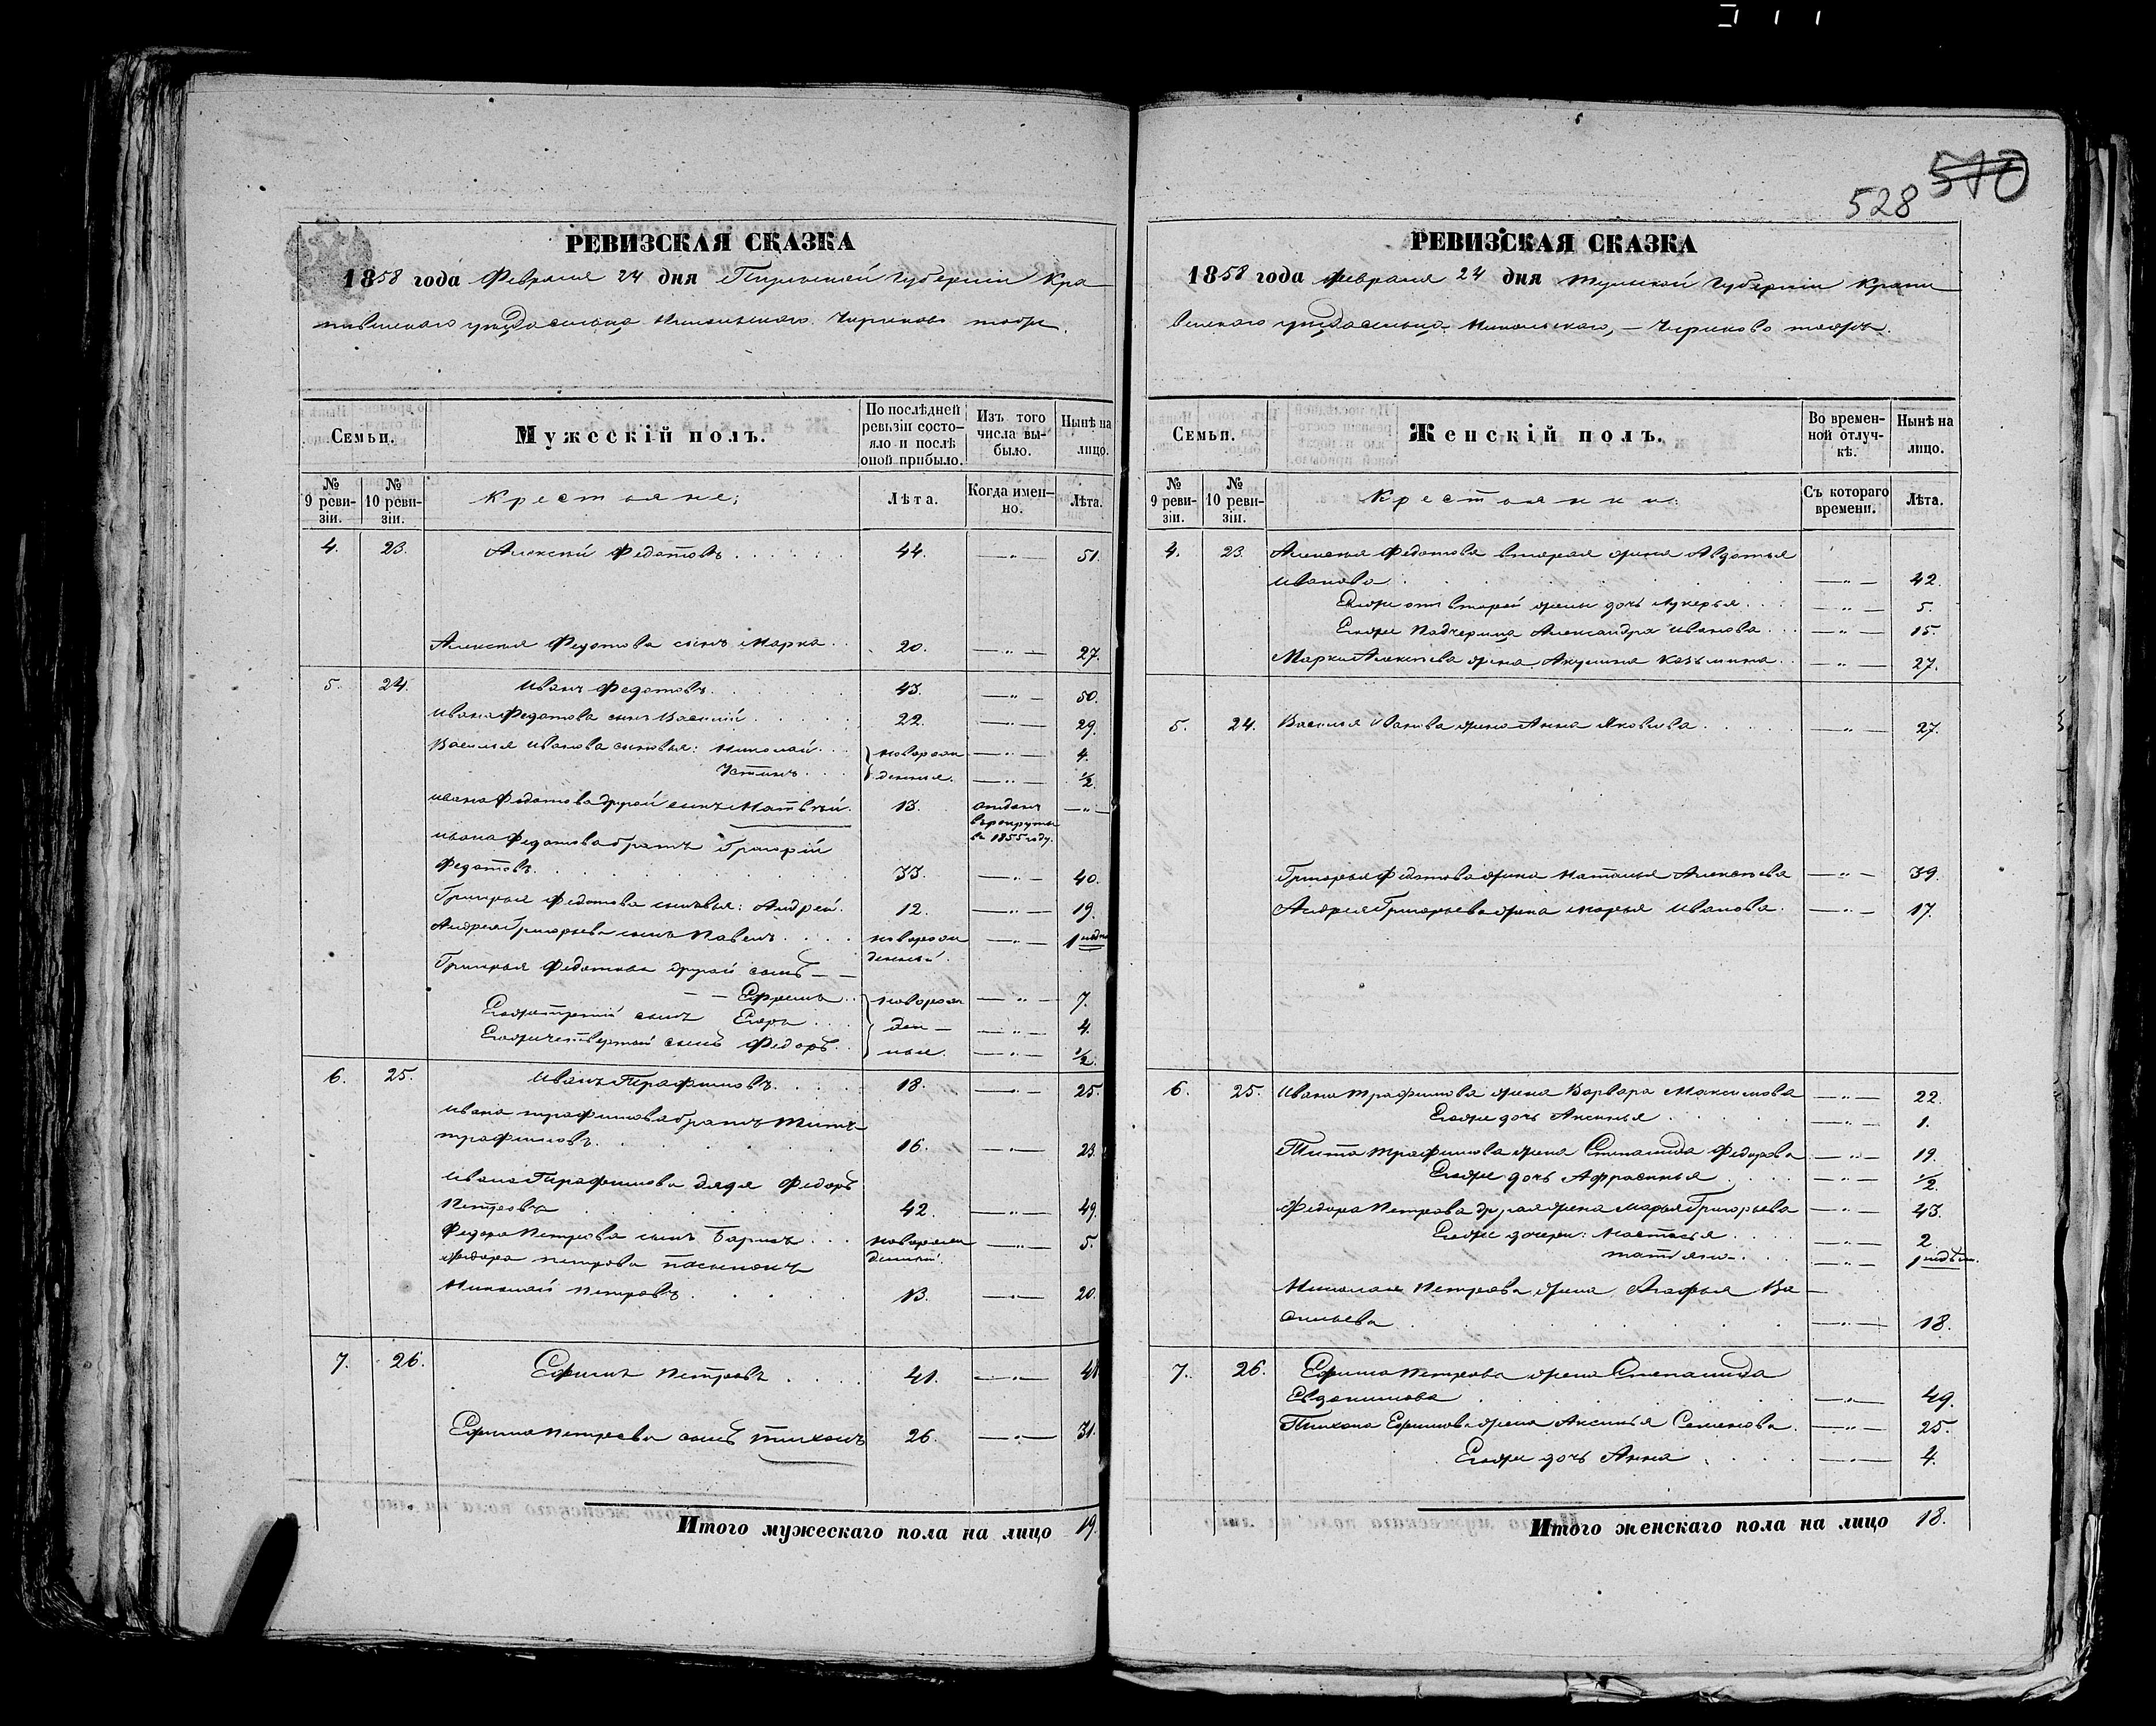 528 510
РЕВИЗСКАЯ СКАЗКА
1858 года Февраля 24 дня Тульской Губерніи Кра
пивенскаго уезда сельца Никольскаго Чириково тожъ.
Семьи. Мужескій полъ. По послѣдней ревизіи состояло и послѣ оной прибыло. Изъ того числа выбыло. Нынѣ на лицо.
№ 9 ревизіи. № 10 ревизіи. Крестьяне; Лѣта. Когда именно. Лѣта.
4. 23. Алексѣй Федотовъ 44. —„— 51.
Алексея Федотова сынъ Марка 20. —„— 27.
5. 24. Иванъ Федотовъ 43. —„— 50.
Ивана Федотова сынъ Василій 22. —„— 29.
Василья Иванова сыновья: Николай новорож —„— 4.
Устинъ денныя. —„— 1/2
Ивана Федотова другой сынъ Матвѣй 13. отданъ —„—
въ рекруты
въ 1855 году.
Ивана Федотова братъ Григорій
Федотовъ 33. —„— 40.
Григорья Федотова сыновья: Андрей 12. —„— 19.
Андрея Григорьева сынъ Павелъ новорож —„— 1 недѣ
денный.
Григорья Федотова другой сынъ —
— Ефремъ новорож —„— 7.
Егоже третій сынъ Егоръ ден — —„— 4.
Егоже четвертый сынъ Федоръ ные. —„— 1/2
6. 25. Иванъ Трафимовъ 18. —„— 25.
Ивана Трафимова братъ Титъ
Трафимовъ 16. —„— 23.
Ивана Трафимова дядя Федоръ
Петровъ 42. —„— 49.
Федора Петрова сынъ Барисъ новорож —„— 5.
Федора Петрова пасынокъ денный.
Николай Петровъ 13. —„— 20.
7. 26. Ефимъ Петровъ 41. —„— 48
Ефима Петрова сынъ Тихонъ 26. —„— 31.
Итого мужескаго пола на лицо 19.
РЕВИЗСКАЯ СКАЗКА
1858 года Февраля 24 дня Тульской Губерніи Крапи
венскаго уезда сельца Никольскаго, — Чириково тожъ.
Семьи. Женскій полъ. Во временной отлучкѣ. Нынѣ на лицо.
№ 9 ревизіи. № 10 ревизіи. Крестьянки. Съ котораго времени. Лѣта.
4. 23. Алексея Федотова вторая жена Авдотья
Иванова —„— 42.
Егоже от второй жены дочь Лукерья —„— 5.
Егоже Падчерица Александра Иванова —„— 15.
Марки Алексѣева жена Акулина Козьмина —„— 27.
5. 24. Василья Иванова жена Анна Яковлева —„— 27.
Григорья Федотова жена Наталья Алексѣева —„— 39.
Андрея Григорьева жена Марья Иванова —„— 17.
6. 25. Ивана Трафимова жена Варвара Максимова —„— 22.
Егоже дочь Аксинья —„— 1.
Тита Трафимова жена Степанида Федорова —„— 19.
Егоже дочь Афросинья —„— 1/2
Федора Петрова другая жена Марья Григорьева —„— 43.
Егоже дочери: Настасья —„— 2
Татьяна —„— 1 недѣли.
Николая Петрова жена Агафья Ва
сильева —„— 18.
7. 26. Ефима Петрова жена Степанида
Евдокимова —„— 49.
Тихона Ефимова жена Аксинья Семенова —„— 25.
Егоже дочь Анна —„— 4.
Итого женскаго пола на лицо 18.